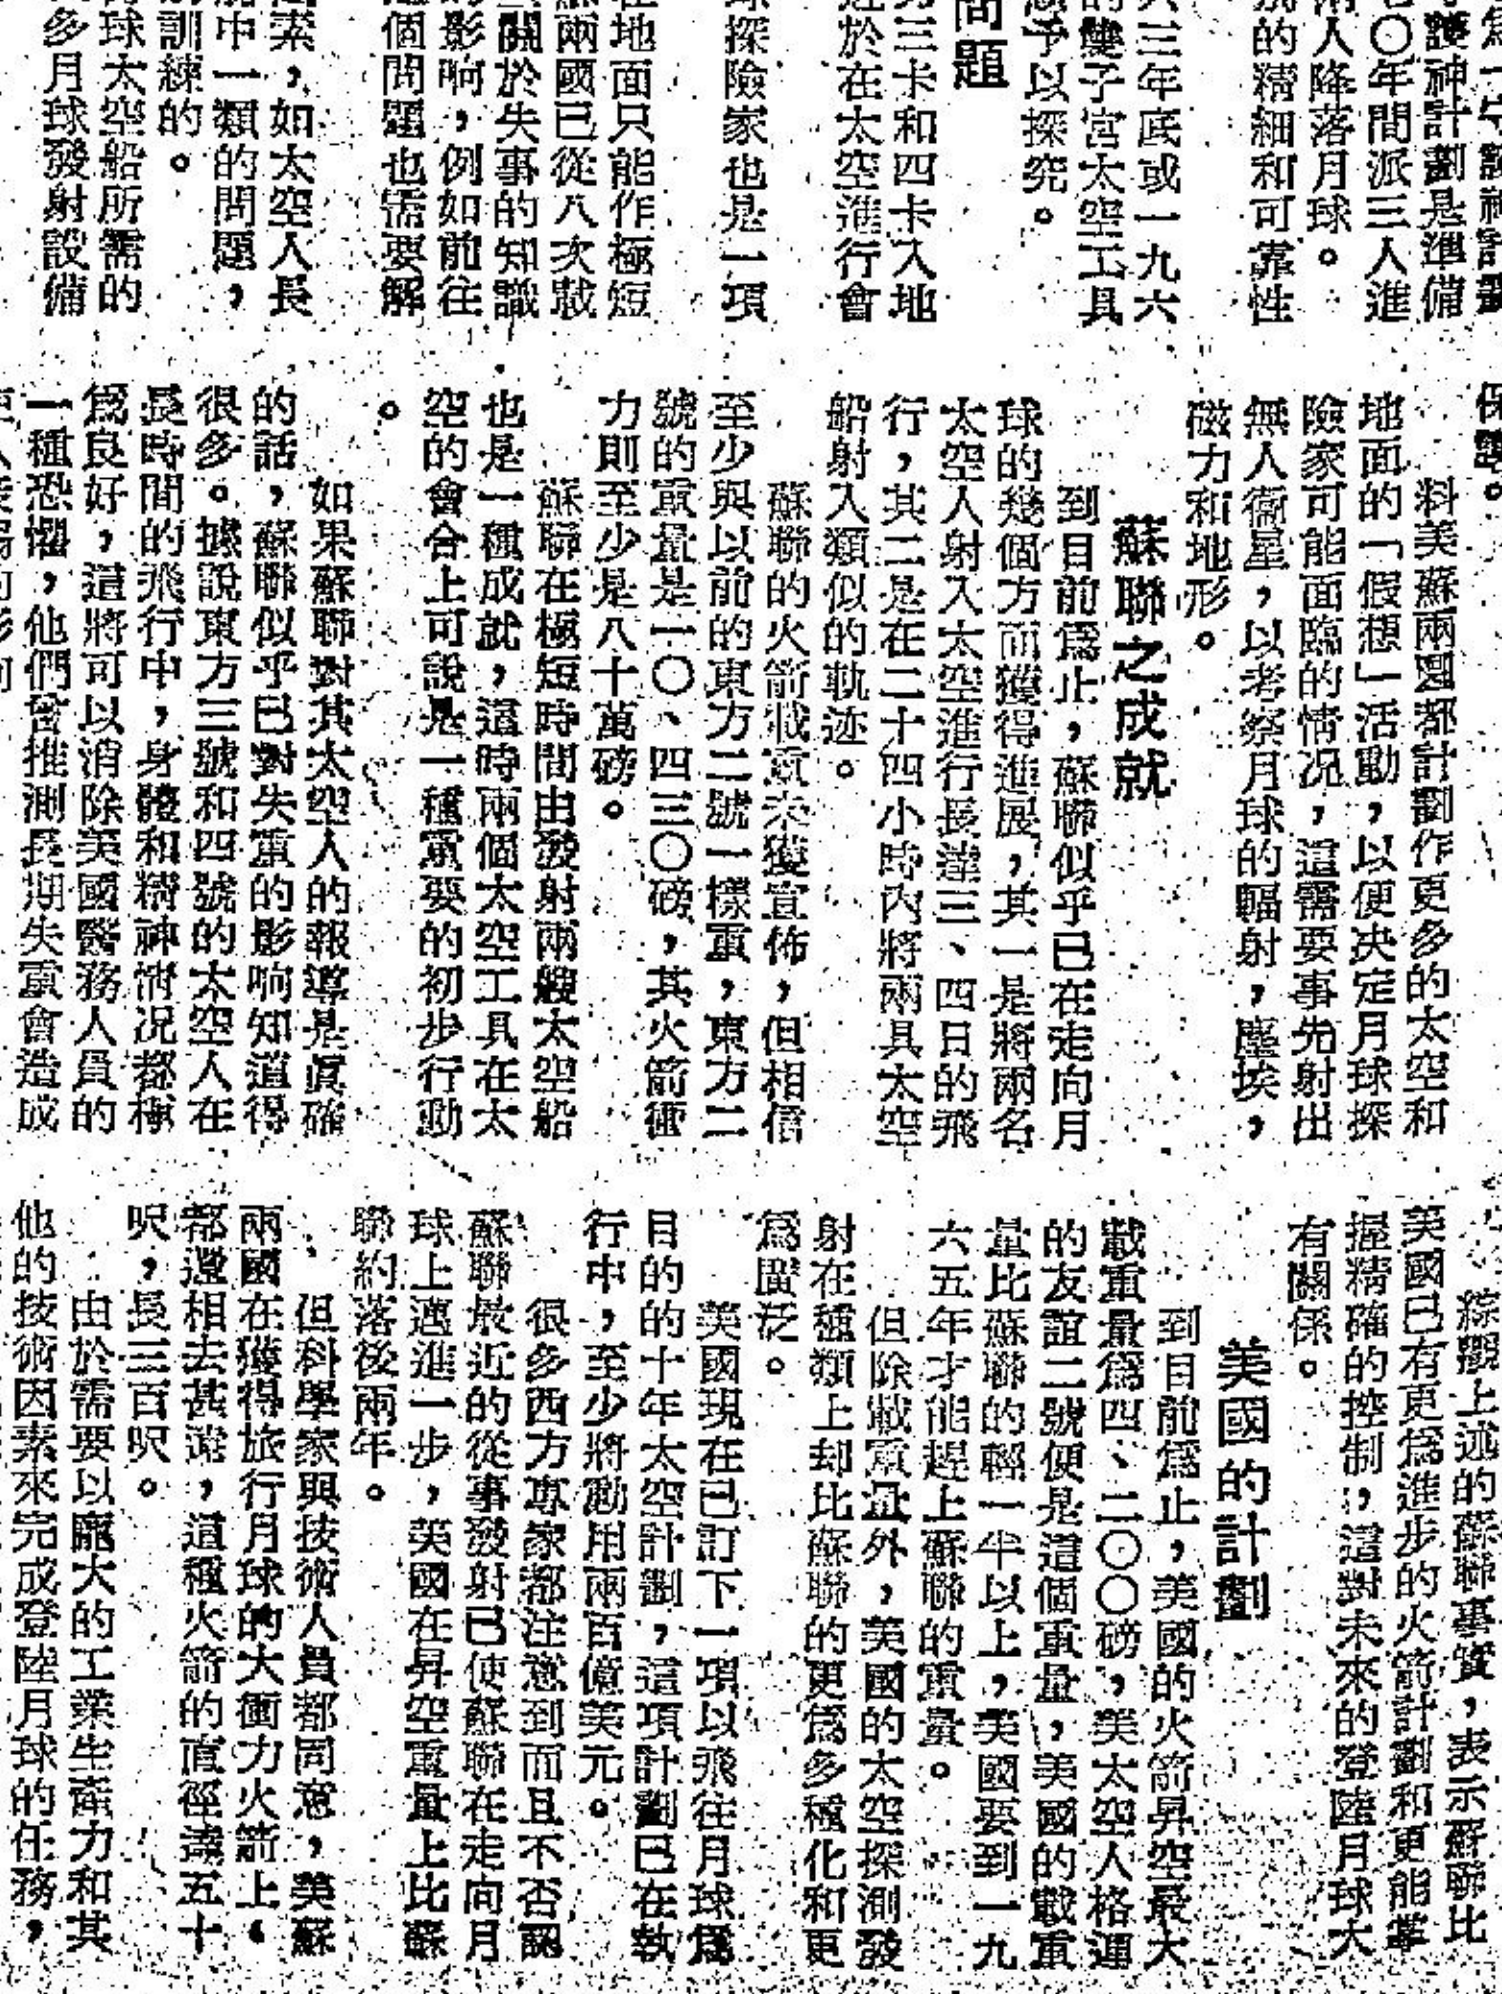 護神計劃是準備
〇年間派三人進
人降落月球。
的精細和可靠性
三年底或一九六
的雙子宮太空工具
予以探究。
問題
三卡和四卡入地
於在太空進行會
探險家也是一項
地面只能作極短
兩國已從八次載
關於失事的知識
影响，例如前往
個問題也需要解
素，如太空人長
中一類的問題，
訓練的。
球太空船所需的
多月球發射設備
保護。
料美蘇兩國都計劃作更多的太空和
地面的「假想」活動，以便決定月球探
險家可能面臨的情况，這需要事先射出
無人衞星，以考察月球的輻射，塵埃，
磁力和地形。
蘇聯之成就
到目前爲止，蘇聯似乎已在走向月
球的幾個方面獲得進展，其一是將兩名
太空人射入太空進行長達三、四日的飛
行，其二是在二十四小時內將兩具太空
船射入類似的軌迹。
蘇聯的火箭載重未獲宣佈，但相信
至少與以前的東方二號一樣重，東方二
號的重量是一〇、四三〇磅，其火箭衝
力則至少是八十萬磅。
蘇聯在極短時間由發射兩艘太空船
也是一種成就，這時兩個太空工具在太
空的會合上可說是一種重要的初步行動
。
如果蘇聯對其太空人的報導是眞確
的話，蘇聯似乎已對失重的影响知道得
很多。據說東方三號和四號的太空人在
長時間的飛行中，身體和精神情况都極
爲良好，這將可以消除美國醫務人員的
一種恐懼，他們曾推測長期失重會造成
綜觀上述的蘇聯事實，表示蘇聯比
美國已有更爲進步的火箭計劃和更能掌
握精確的控制，這對未來的登陸月球大
有關係。
美國的計劃
到目前爲止，美國的火箭昇空最大
載重量爲四、二〇〇磅，美太空人格運
的友誼二號便是這個重量，美國的載重
量比蘇聯的輕一半以上，美國要到一九
六五年才能趕上蘇聯的重量。
但除載重量外，美國的太空探測發
射在種類上却比蘇聯的更爲多種化和更
爲廣泛。
美國現在已訂下一項以飛往月球爲
目的的十年太空計劃，這項計劃已在執
行中，至少將動用兩百億美元。
很多西方專家都注意到而且不否認
蘇聯最近的從事發射已使蘇聯在走向月
球上邁進一步，美國在昇空重量上比蘇
聯約落後兩年。
但科學家與技術人員都同意，美蘇
兩國在獲得旅行月球的大衝力火箭上，
都還相去甚遠，這種火箭的直徑達五十
呎，長三百呎。
由於需要以龐大的工業生產力和其
他的技術因素來完成登陸月球的任務，